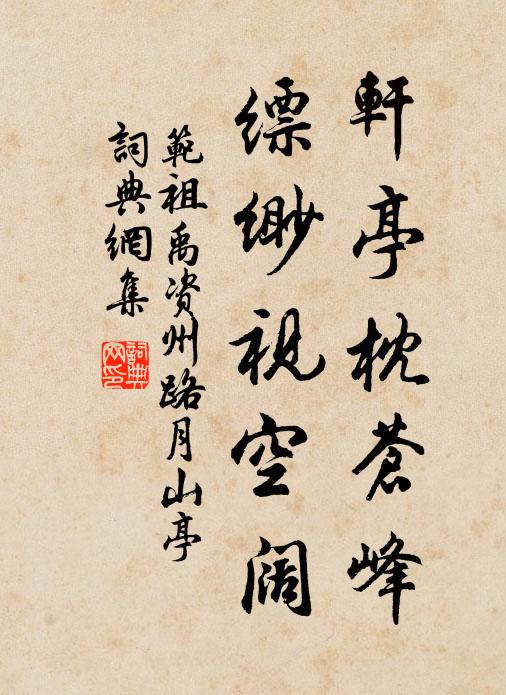 軒亭枕蒼峰
缥緲視空阔
範祖禹资州路月山亭
詞典網集
詞典网印